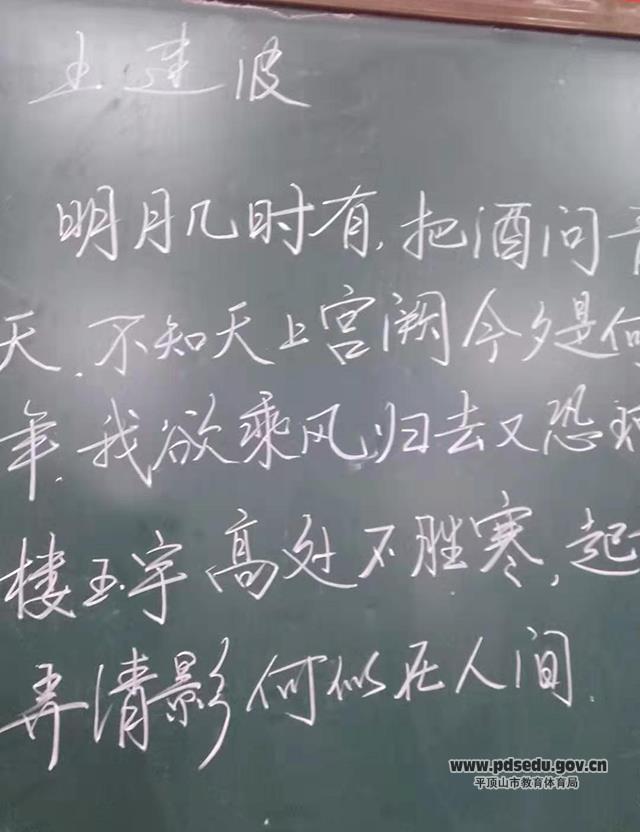 王建波
明月几时有,把酒问青
天.不知天上宫阙今夕是何
年.我欲乘风归去又恐琼
楼玉宇高处不胜寒,起
弄清影何似在人间.
www.pdsedu.gov.cn
平顶山市教育体育局